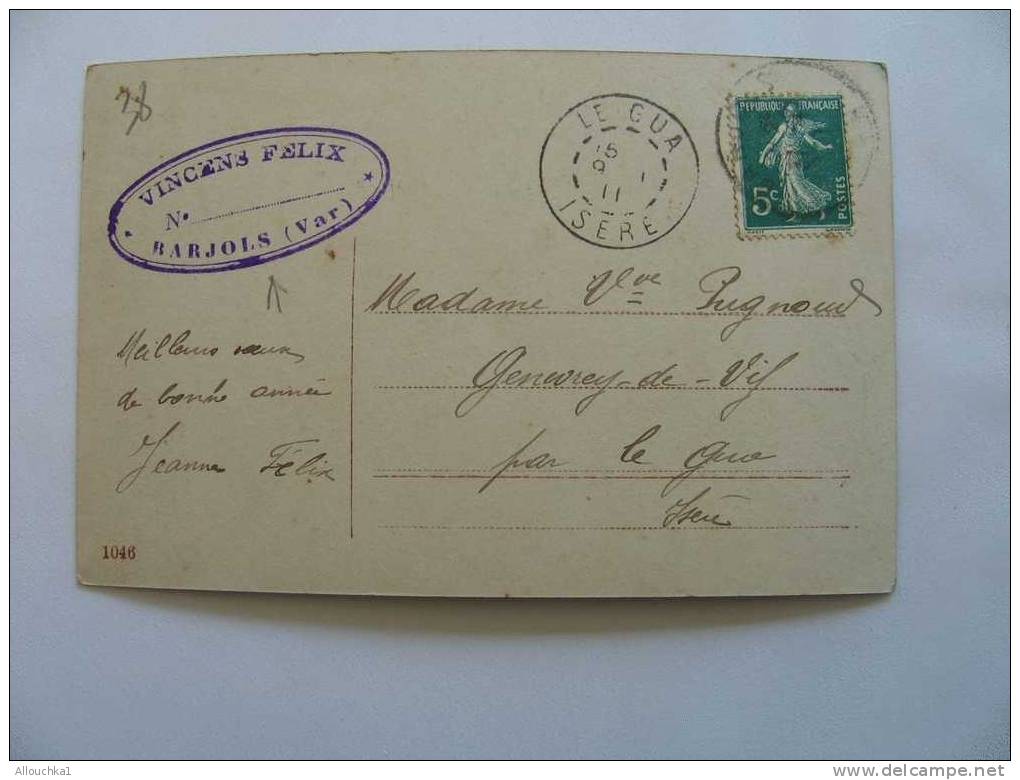 38
VINCENS FELIX
No
BARJOLS (Var)
LE GUA
15
9 - 1
11
ISÈRE
REPUBLIQUE FRANÇAISE
5c
POSTES
Madame Vve Pugnoud
Genevrey-de-Vif
par le Gua
Isère
Meilleurs vœux
de bonne année
Jeanne Félix
1046
Allouchka1
www.delcampe.net